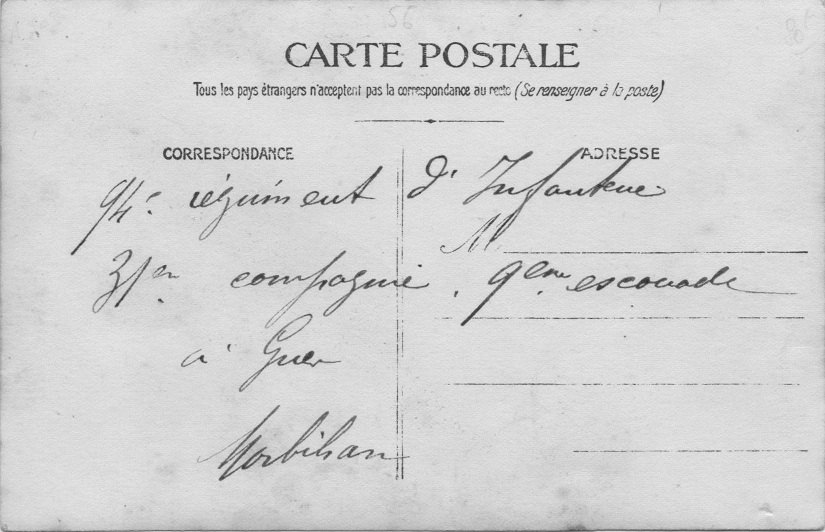 56
CARTE POSTALE
Tous les pays étrangers n'acceptent pas la correspondance au recto (Se renseigner à la poste)
CORRESPONDANCE
ADRESSE
94e régiment d'Infanterie
M
31em compagnie. 9eme escouade
à Guer
Morbihan